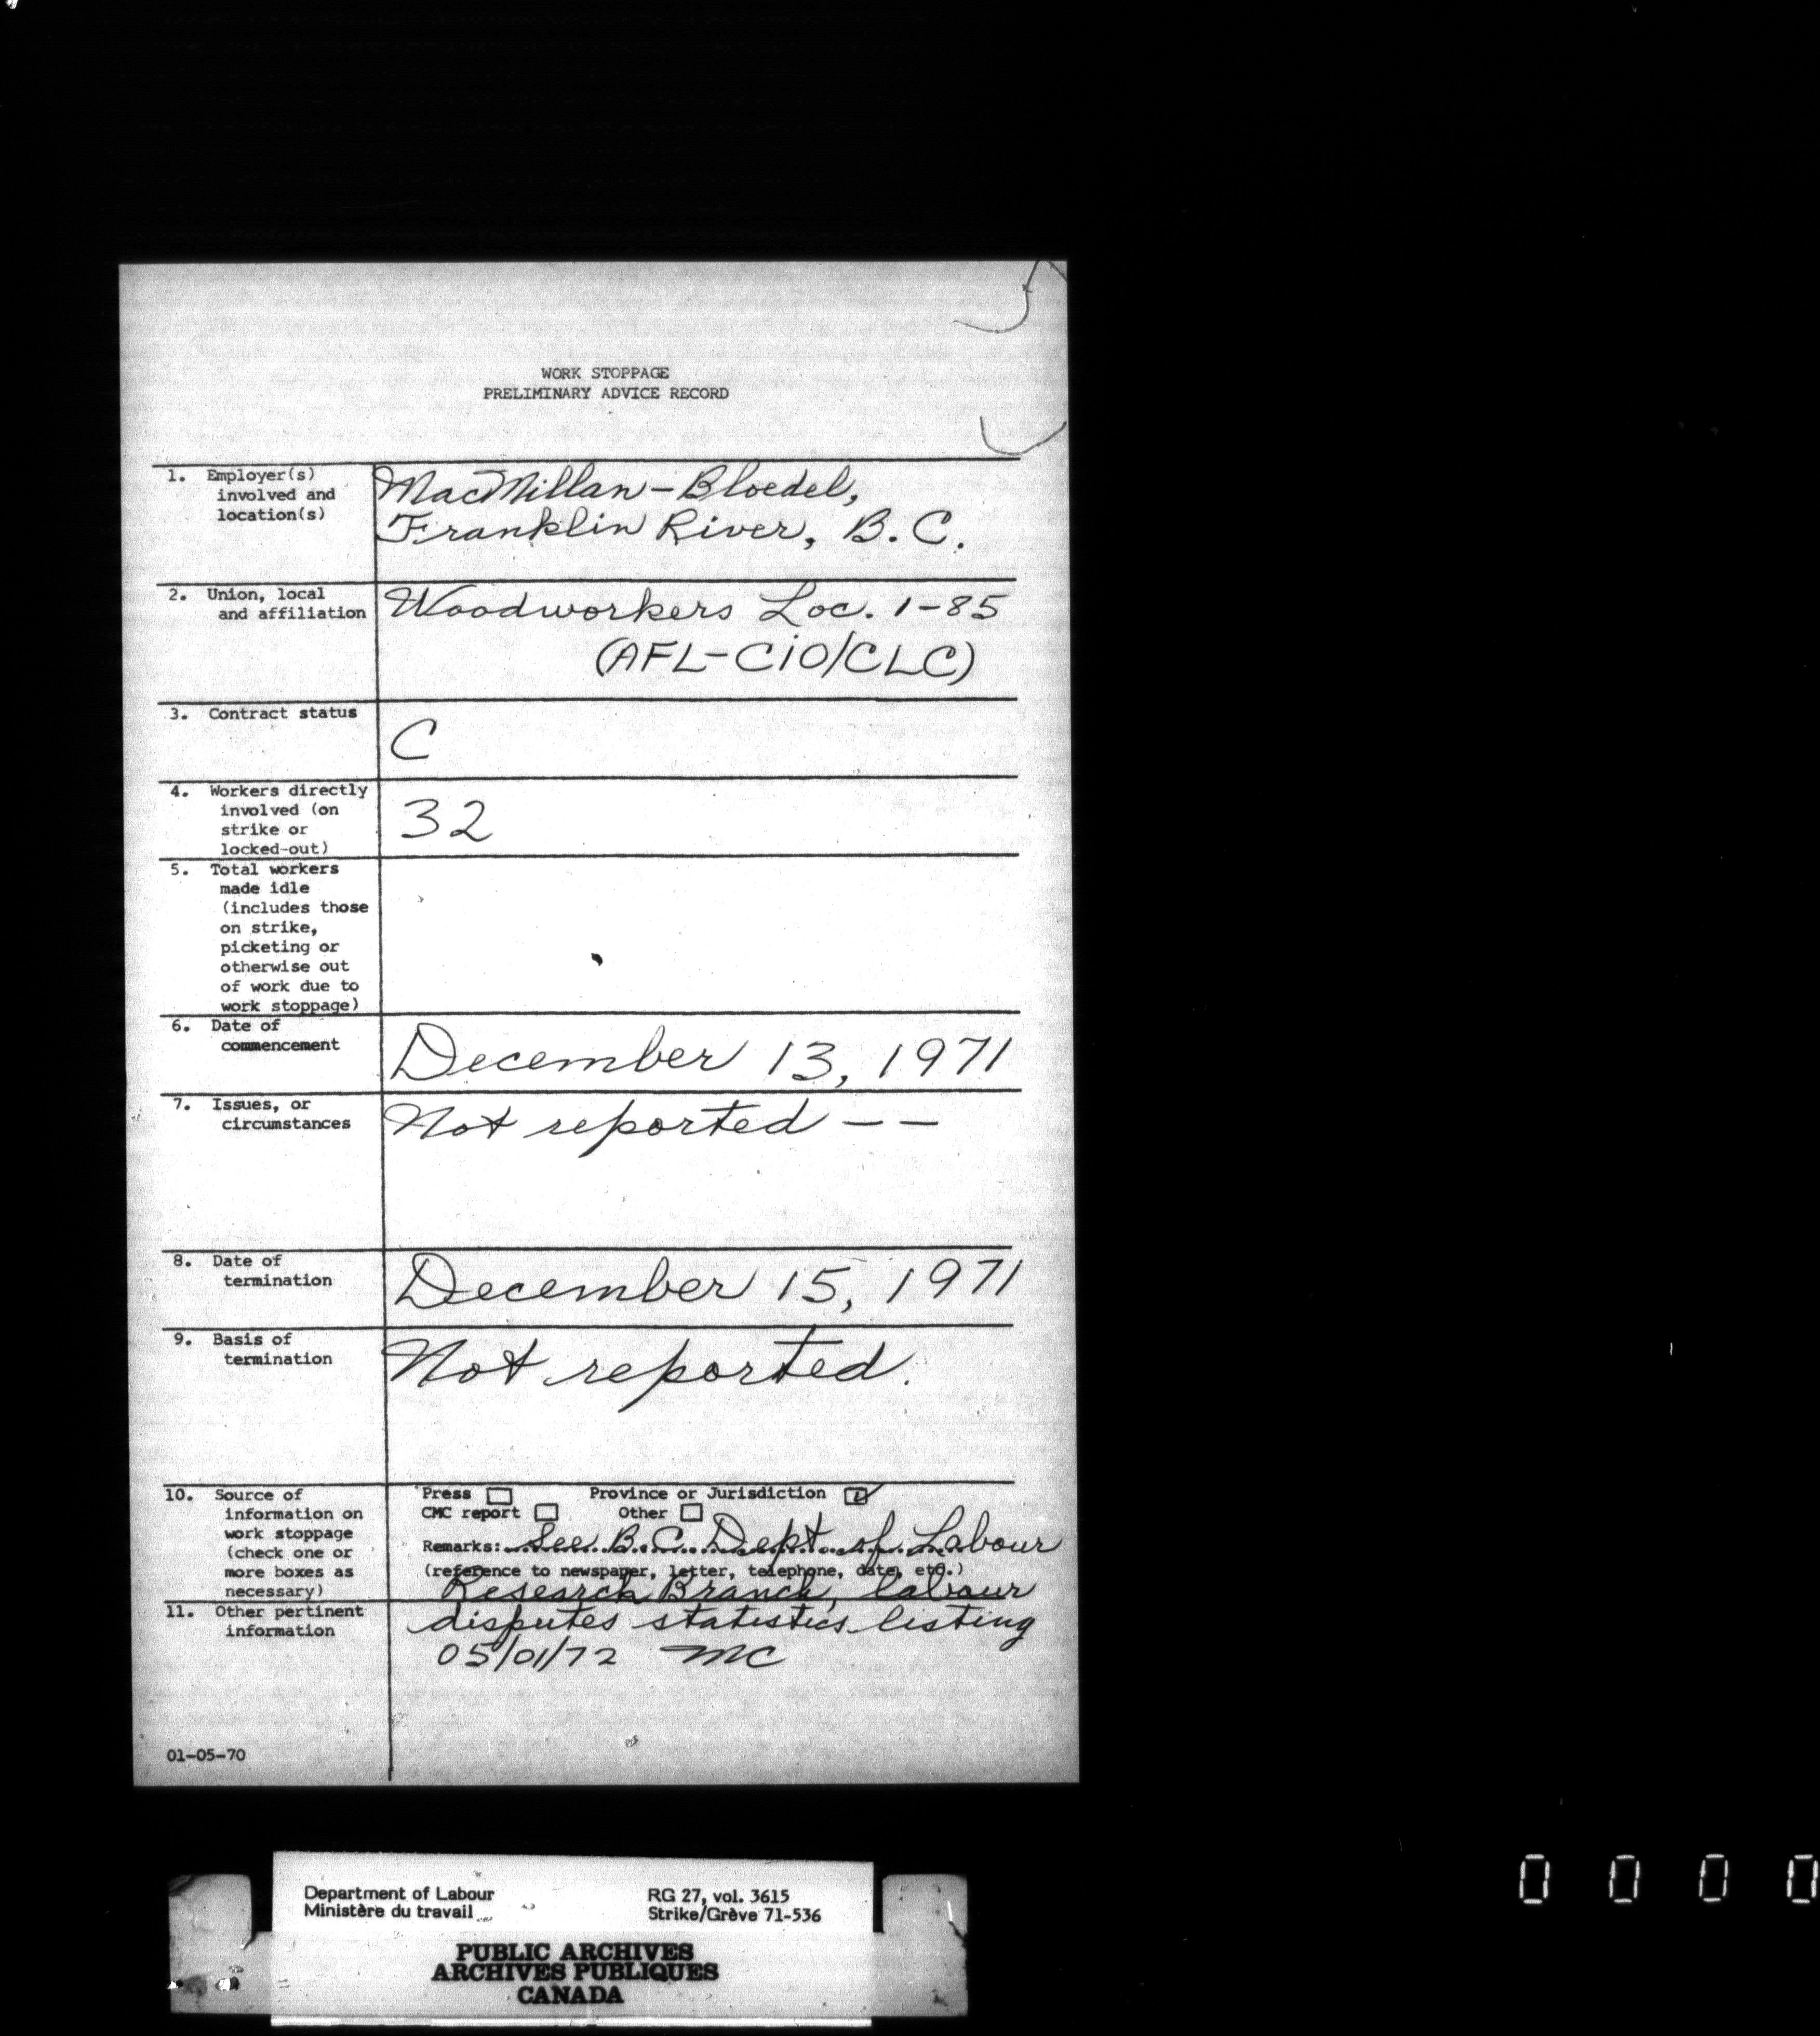 WORK STOPPAGE
PRELIMINARY ADVICE RECORD
1. Employer(s)
involved and
location(s)
MacMillan-Bloedel,
Franklin River, B.C.
2. Union, local
and affiliation
Woodworkers Loc. 1-85
(AFL-CiO/CLC)
3. Contract status
C
4. Workers directly
involved (on
strike or
locked-out)
32
5. Total workers
made idle
(includes those
on strike,
picketing or
otherwise out
of work due to
work stoppage)
6. Date of
commencement
December 13, 1971
7. Issues, or
circumstances
Not reported --
8. Date of
termination
December 15, 1971
9. Basis of
termination
Not reported.
10. Source of
information on
work stoppage
(check one or
more boxes as
necessary)
Press Province or Jurisdiction
CMC report Other
Remarks: See B.C. Dept. of Labour
(reference to newspaper, letter, telephone, date, etc.)
Research Branch, labour
11. Other pertinent
information
disputes statistics listing
05/01/72 MC
01-05-70
Department of Labour
Ministère du travail
RG 27, vol. 3615
Strike/Grève 71-536
PUBLIC ARCHIVES
ARCHIVES PUBLIQUES
CANADA
0 0 0 0